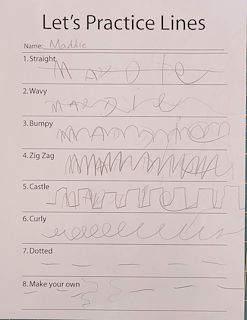 Let's Practice Lines
Name: Maddie
1. Straight
2. Wavy
3. Bumpy
4. Zig Zag
5. Castle
6. Curly
7. Dotted
8. Make your own